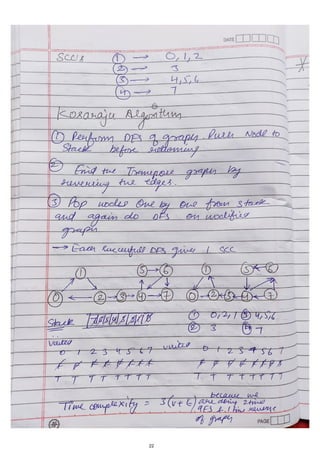 DATE
SCC's ① → 0,1,2
② → 3
③ → 4,5,6
④ → 7
Kosaraju Algorithm
① Perform DFS of graph. Push Node to
Stack before returning
② Find the Transpose graph by
reversing the edges.
③ Pop nodes One by One from stack
and again do DFS on modified
graph
→ Each successfull DFS gives 1 SCC
1 5 → 6 1 5 6
0 2 3 4 7 0 2 3 4 7
Stack ① 0,2,1 ③ 4,5,6
② 3 ④ 7
visited visited
0 1 2 3 4 5 6 7 0 1 2 3 4 5 6 7
F F F F F F F F F F F F F F F F
T T T T T T T T T T T T T T T T
because we
Time complexity = 3(V+E) are doing 2 time
DFS & 1 time reverse
of graph
PAGE
22